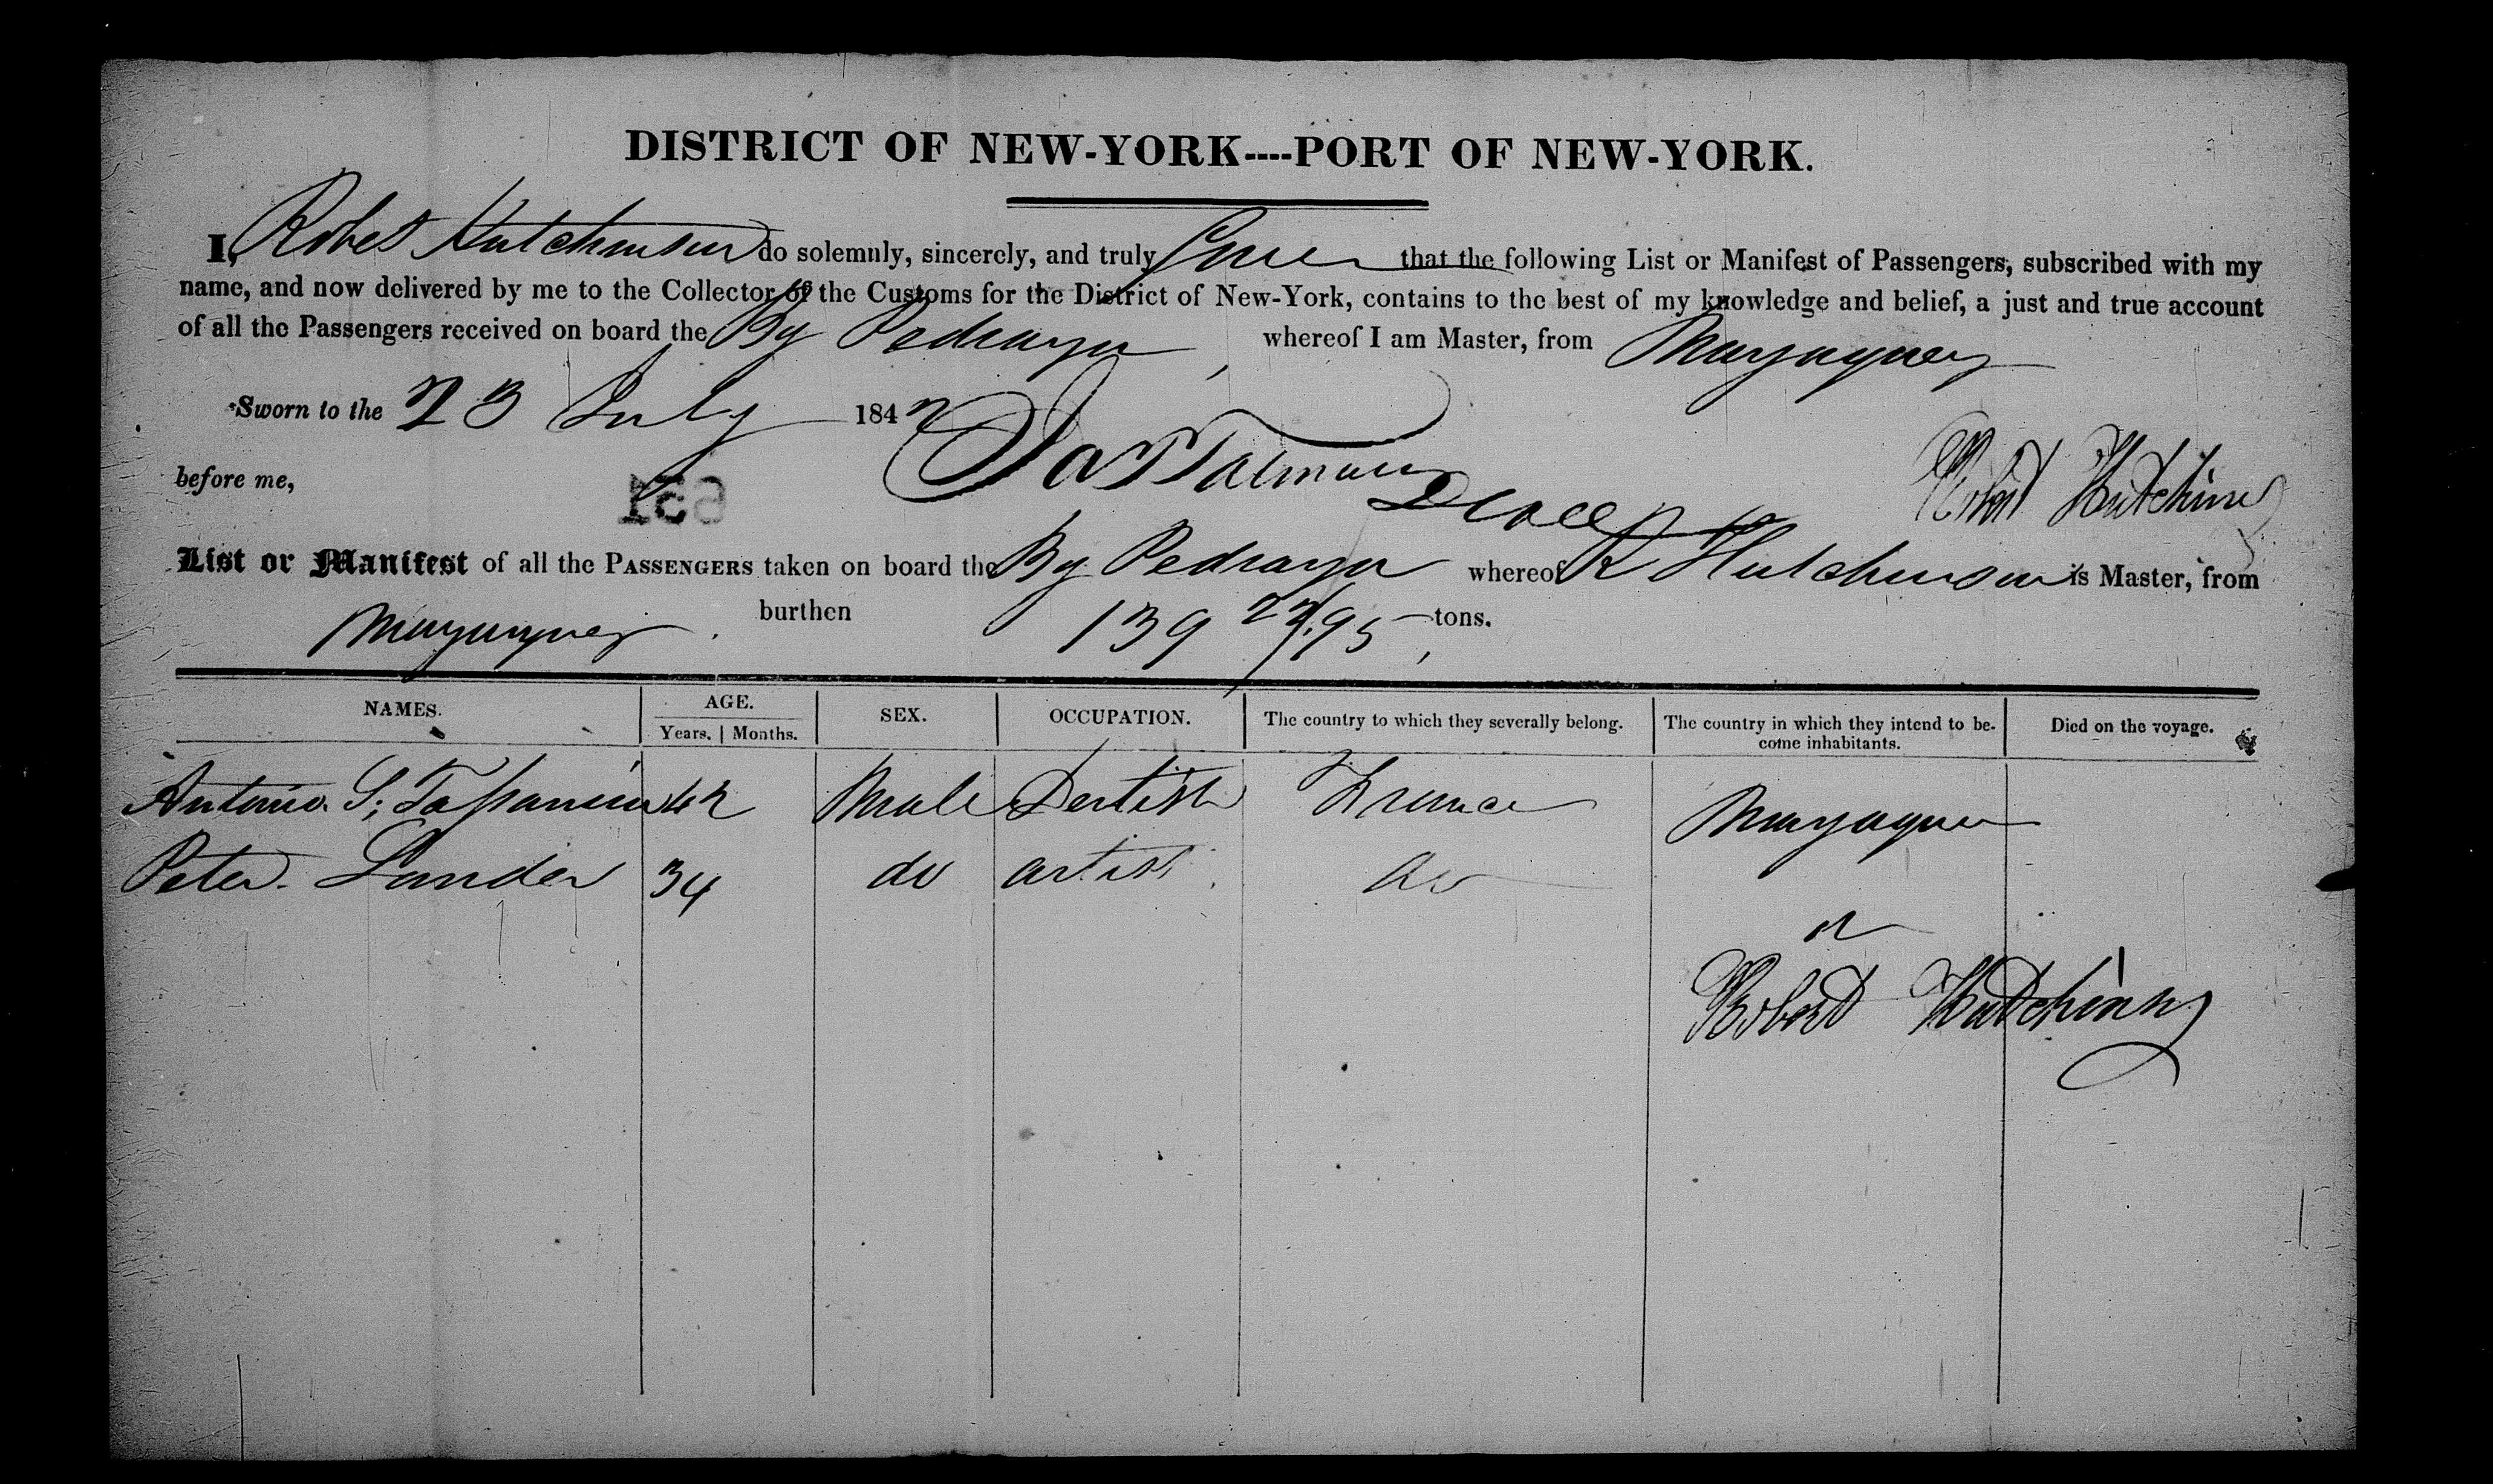 DISTRICT OF NEW-YORK----PORT OF NEW-YORK.
I, Robet Hutchinson do solemnly, sincerely, and truly that the following List or Manifest of Passengers, subscribed with my
name, and now delivered by me to the Collector of the Customs for the District of New-York, contains to the best of my knowledge and belief, a just and true account
of all the Passengers received on board the Bg Pedraza, whereof I am Master, from Mayaguez
Sworn to the 23 July 1842
before me,
Robert Hutchinson
List or Manifest of all the PASSENGERS taken on board the Bg Pedraza whereof R Hutchinson is Master, from
Mayaguez. burthen 139 22/95, tons.
NAMES. AGE. SEX. OCCUPATION. The country to which they severally belong. The country in which they intend to be- Died on the voyage.
Years. | Months. come inhabitants.
Antonio S, 42 Male Dentist France Mayaguez
Peter Lander 34 do artist do
Robert Hutchinson